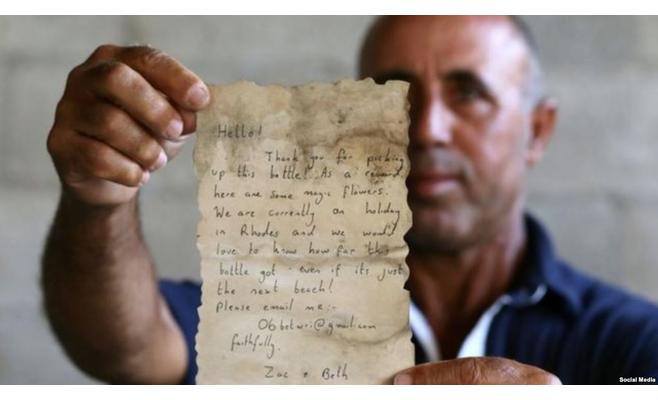 Hello!
Thank you for picking
up this bottle! As a reward
here are some magic flowers.
We are currently on holiday
in Rhodes and we would
love to know how far this
bottle got - even if its just
the next beach!
Please email me:-
06betwri@gmail.com
faithfully,
Zac & Beth
Social Media